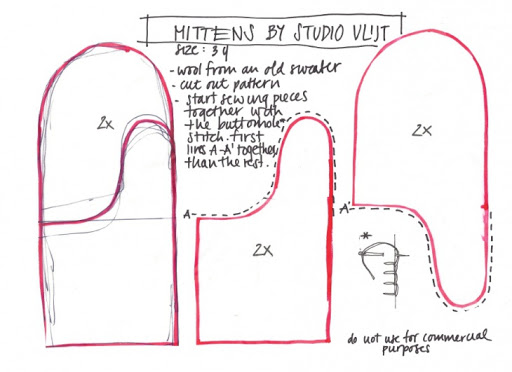 MITTENS BY STUDIO VLIJT
size: 3 y
- wool from an old sweater
- cut out pattern
- start sewing pieces
together with
the buttonhole
stitch. first
lines A-A' together
than the rest.
2x
2x
2x
A
A'
*
do not use for commercial
purposes